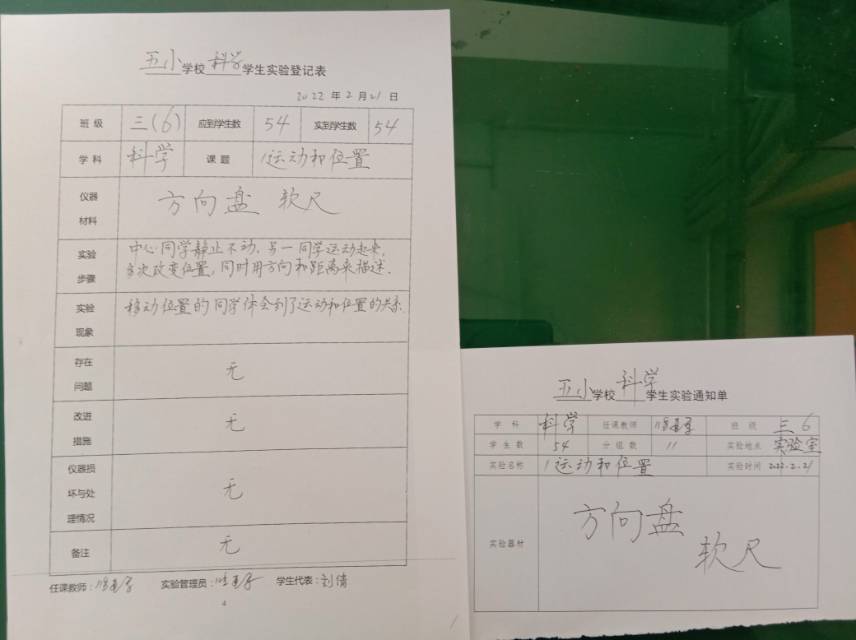 五小学校科学学生实验登记表
2022年2月21日
班级 三(6) 应到学生数 54 实到学生数 54
学科 科学 课题 1运动和位置
仪器材料 方向盘 软尺
实验步骤 中心同学静止不动,另一同学运动起来,
多次改变位置,同时用方向和距离来描述.
实验现象 移动位置的同学体会到了运动和位置的关系
存在问题 无
改进措施 无
仪器损坏与处理情况 无
备注 无
任课教师: 实验管理员: 学生代表:刘倩
4
五小学校科学学生实验通知单
学科 科学 任课教师 班级 三6
学生数 54 分组数 11 实验地点 实验室
实验名称 1运动和位置 实验时间 2022.2.21
实验器材 方向盘
软尺